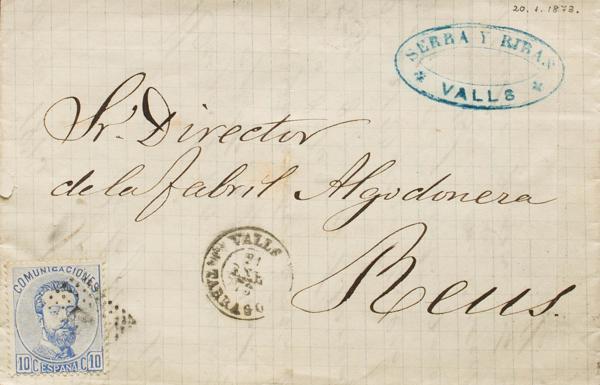 20. 1. 1873.
SERRA Y RIBAS
VALLS
Sr. Director
de la Fabril Algodonera
Reus.
VALLS
21
ENE
73
TARRAGO
COMUNICACIONES
10 C ESPAÑA C 10